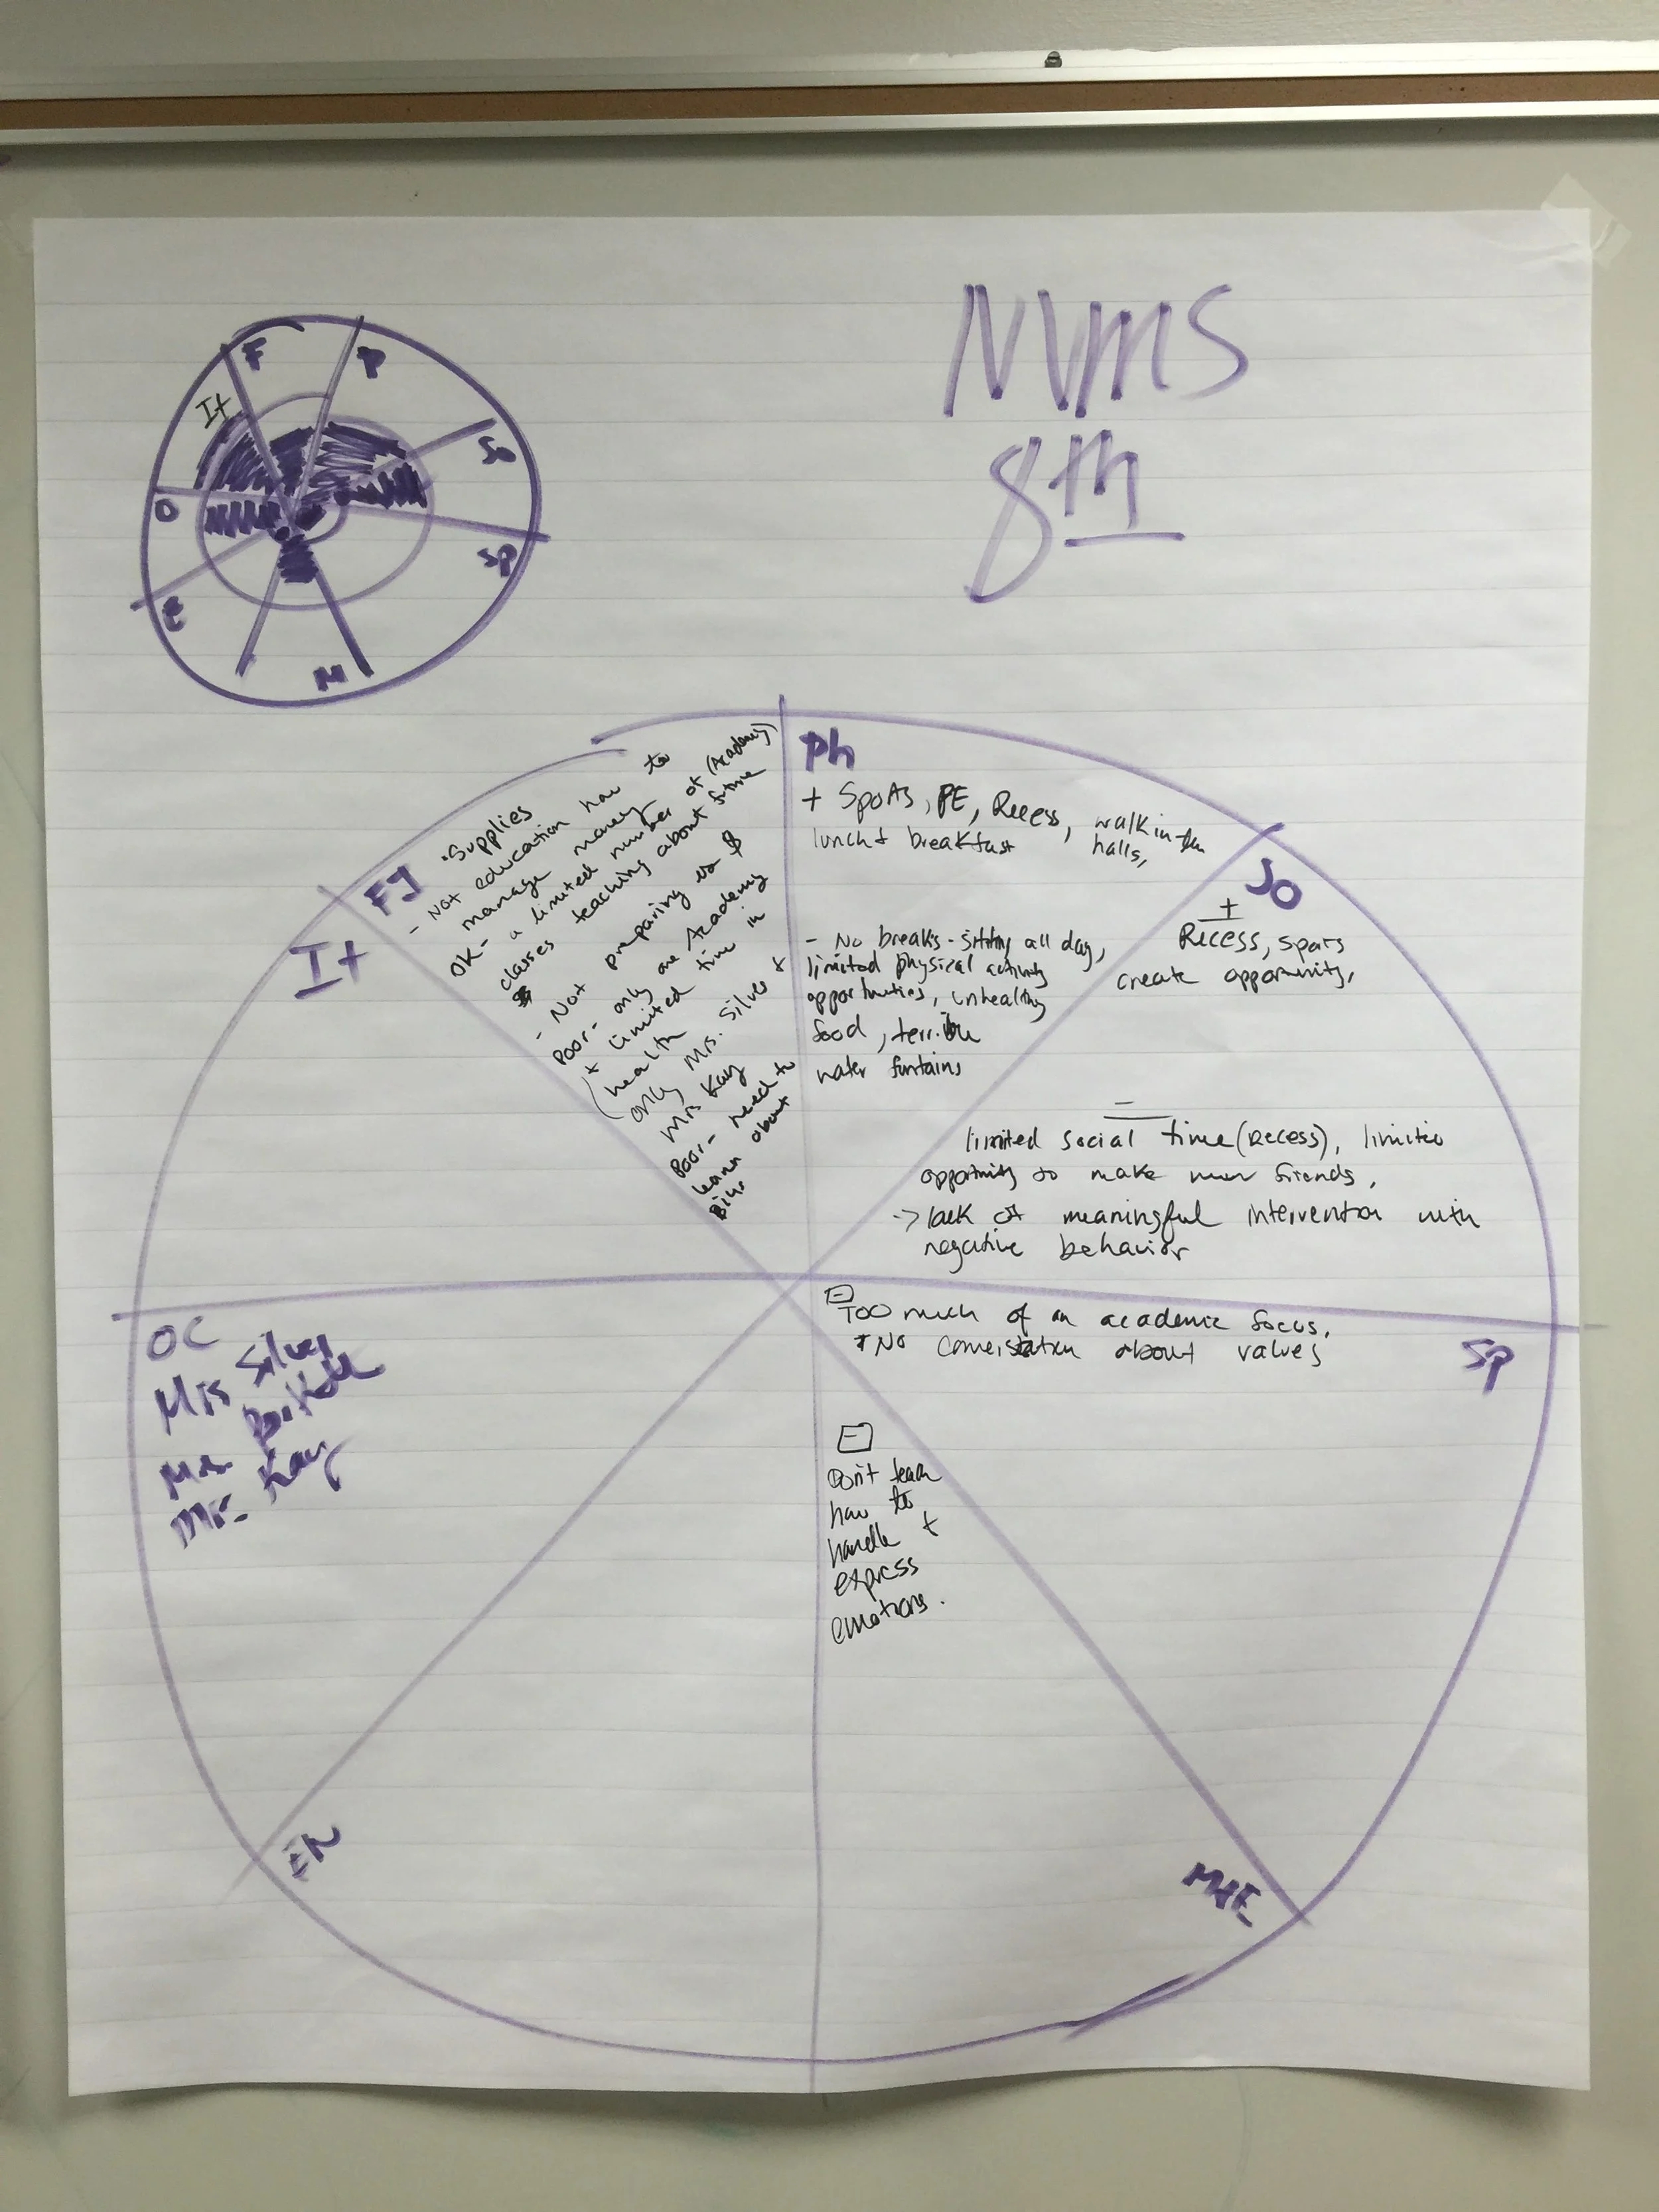 NVMS
8th
F
P
It
So
O
Sp
E
M
FI
• Supplies
- Not education how to
manage money
OK - a limited number of (Academy)
classes teaching about future
$
- Not preparing us $
Poor - only one Academy
+ limited time in
(health
only Mrs. Silver +
Mrs Kay
Poor - need to
learn about
Ph
+ Sports, PE, Recess, walk in
halls,
lunch & breakfast
- No breaks - sitting all day,
limited physical activity
opportunities, unhealthy
food, terrible
water funtains
So
+
Recess, sports
create opportunity,
-
limited social time (recess), limited
opportunity to make new friends,
-> lack of meaningful intervention with
negative behavior
Sp
-
Too much of an academic focus.
No about values
M+E
-
Don't teach
how to
handle +
express
emotions.
It
OC
Mrs Silver
Mr. Kay
EN